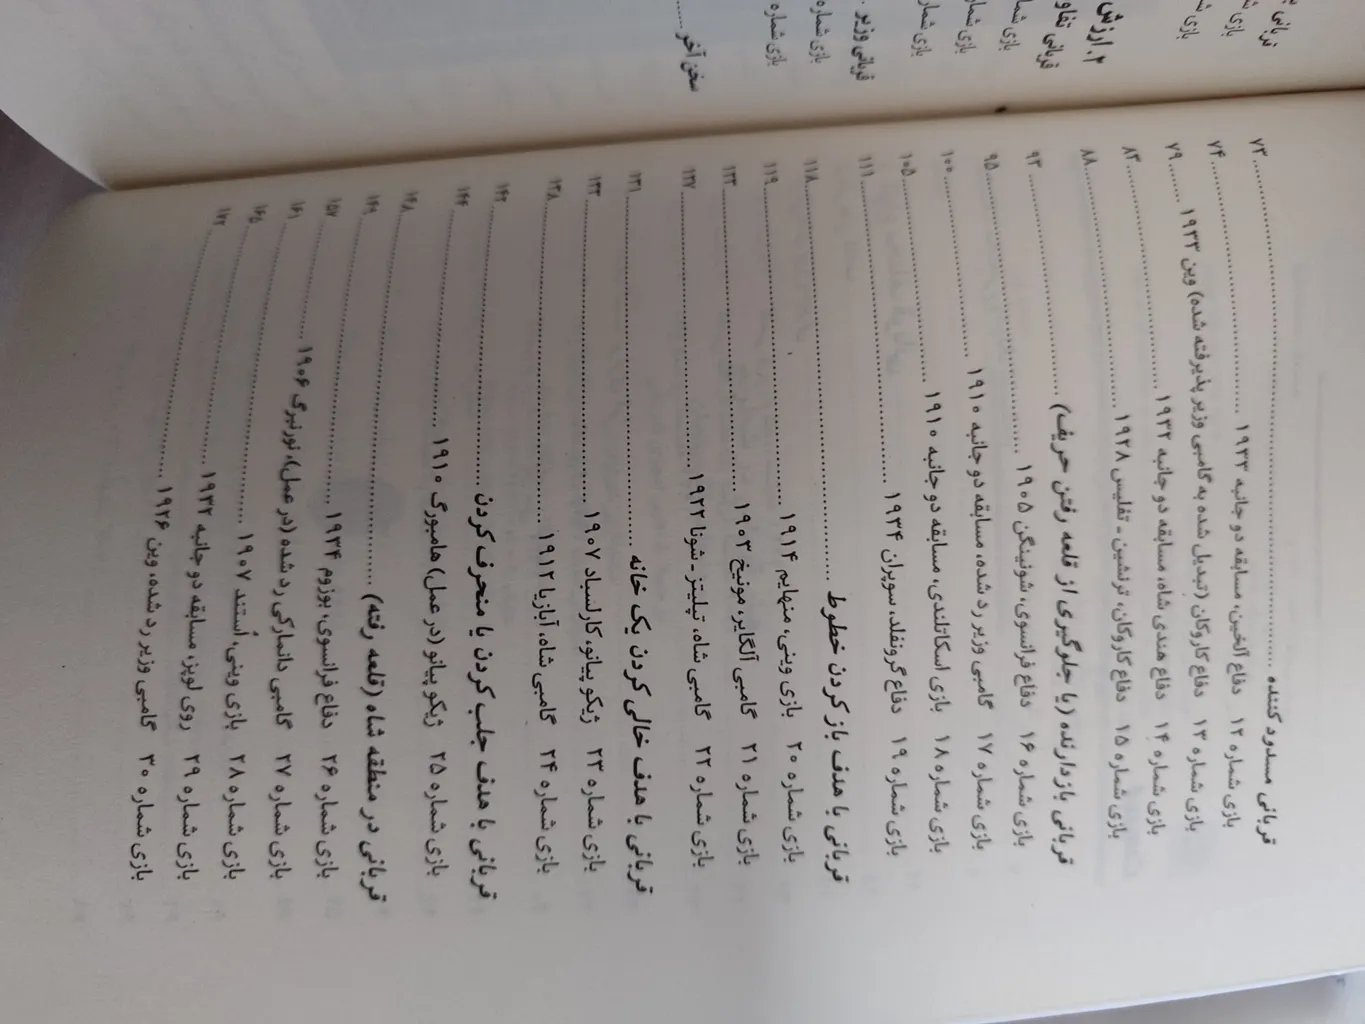 قربانی مسدود کننده ........ ۷۳
بازی شماره ۱۲ دفاع آلخین، مسابقه دو جانبه ۱۹۳۳ ........ ۷۴
بازی شماره ۱۳ دفاع کاروکان (تبدیل شده به گامبی وزیر پذیرفته شده) وین ۱۹۳۳ ........ ۷۹
بازی شماره ۱۴ دفاع هندی شاه، مسابقه دو جانبه ۱۹۳۲ ........ ۸۳
بازی شماره ۱۵ دفاع کاروکان، ترنشین - تفلیس ۱۹۲۸ ........ ۸۸
قربانی بازدارنده (با جلوگیری از قلعه رفتن حریف) ........ ۹۳
بازی شماره ۱۶ دفاع فرانسوی، شونینگن ۱۹۰۵ ........ ۹۵
بازی شماره ۱۷ گامبی وزیر رد شده، مسابقه دو جانبه ۱۹۱۰ ........ ۱۰۰
بازی شماره ۱۸ بازی اسکاتلندی، مسابقه دو جانبه ۱۹۱۰ ........ ۱۰۵
بازی شماره ۱۹ دفاع گرونفلد، سوپران ۱۹۳۴ ........ ۱۱۱
قربانی با هدف باز کردن خطوط ........ ۱۱۸
بازی شماره ۲۰ بازی وینی، منهایم ۱۹۱۴ ........ ۱۱۹
بازی شماره ۲۱ گامبی آلگایر، مونیخ ۱۹۰۳ ........ ۱۲۳
بازی شماره ۲۲ گامبی شاه، تپلیتز - شونا ۱۹۲۲ ........ ۱۲۷
قربانی با هدف خالی کردن یک خانه ........ ۱۳۱
بازی شماره ۲۳ ژیکو پیانو، کارلسباد ۱۹۰۷ ........ ۱۳۳
بازی شماره ۲۴ گامبی شاه، آبازیا ۱۹۱۲ ........ ۱۳۸
قربانی با هدف جلب کردن یا منحرف کردن ........ ۱۴۳
بازی شماره ۲۵ ژیکو پیانو (در عمل) هامبورگ ۱۹۱۰ ........ ۱۴۴
قربانی در منطقه شاه (قلعه رفته) ........ ۱۴۸
بازی شماره ۲۶ دفاع فرانسوی، بوزوم ۱۹۳۴ ........ ۱۴۹
بازی شماره ۲۷ گامبی دانمارکی رد شده (در عمل)، نورنبرگ ۱۹۰۶ ........ ۱۵۷
بازی شماره ۲۸ بازی وینی، اُستند ۱۹۰۷ ........ ۱۶۱
بازی شماره ۲۹ روی لوپز، مسابقه دو جانبه ۱۹۳۲ ........ ۱۶۵
بازی شماره ۳۰ گامبی وزیر رد شده، وین ۱۹۲۶ ........ ۱۷۲
قربانی
بازی
بازی
۲. ارزش
قربانی
بازی
بازی شماره
بازی شماره
قربانی وزیر
بازی شماره
بازی شماره
سخن آخر ........